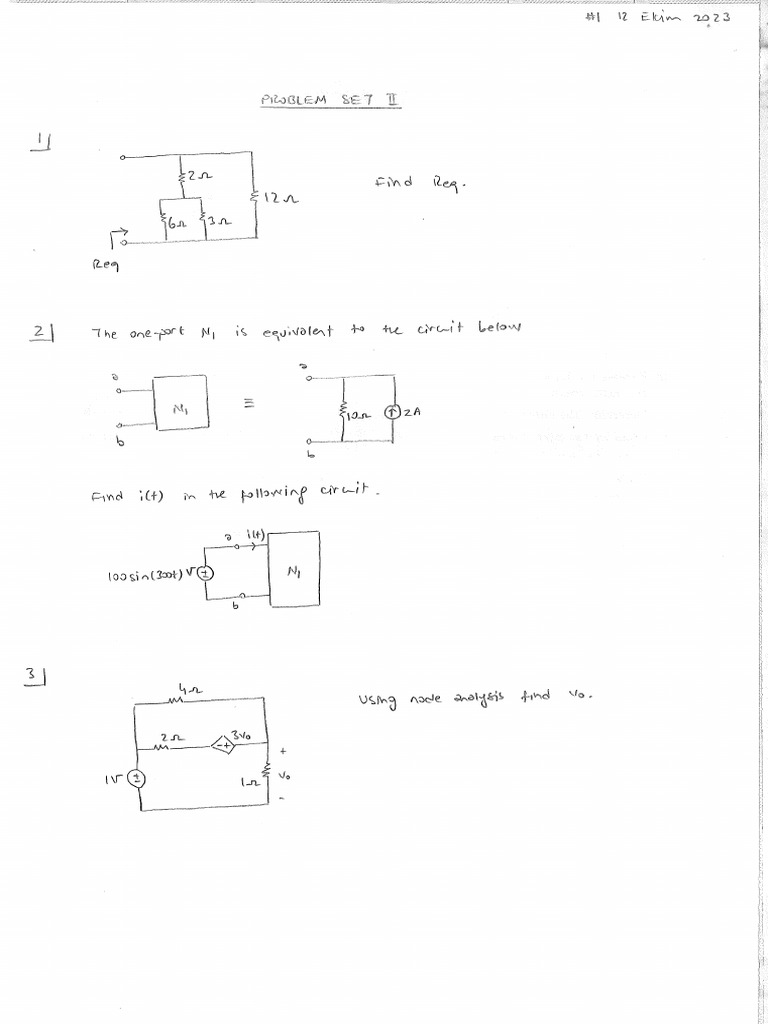 #1 12 Ekim 2023
PROBLEM SET II
1)
2Ω
12Ω
6Ω 3Ω
Find Req.
Req
2) The one-port N₁ is equivalent to the circuit below
a
b
N₁
≡
a
b
10Ω
2A
Find i(t) in the following circuit.
a i(t)
100sin(300t) V
±
N₁
b
3)
4Ω
Using node analysis find v₀.
2Ω
3v₀
- +
1V
±
1Ω
+
v₀
-